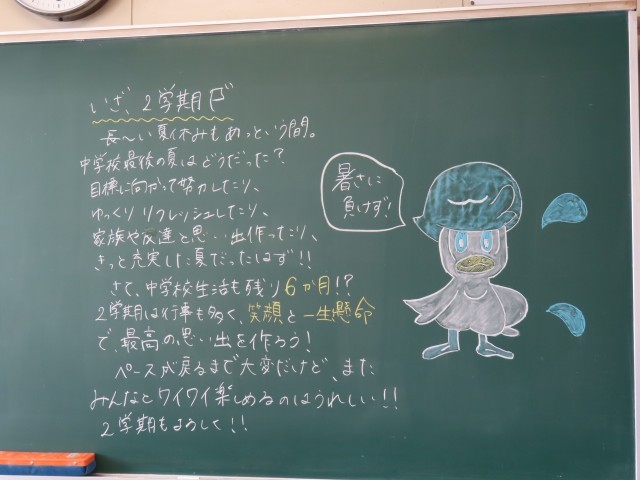 いざ、2学期へ
長〜い夏休みもあっという間。
中学校最後の夏はどうだった?
目標に向かって努力したり、
ゆっくりリフレッシュしたり、
家族や友達と思い出作ったり、
きっと充実した夏だったはず!!
さて、中学校生活も残り6か月!?
2学期は行事も多く、笑顔と一生懸命
で、最高の思い出を作ろう!
ペースが戻るまで大変だけど、また
みんなとワイワイ楽しめるのはうれしい!!
2学期もよろしく!!
暑さに
負けず!